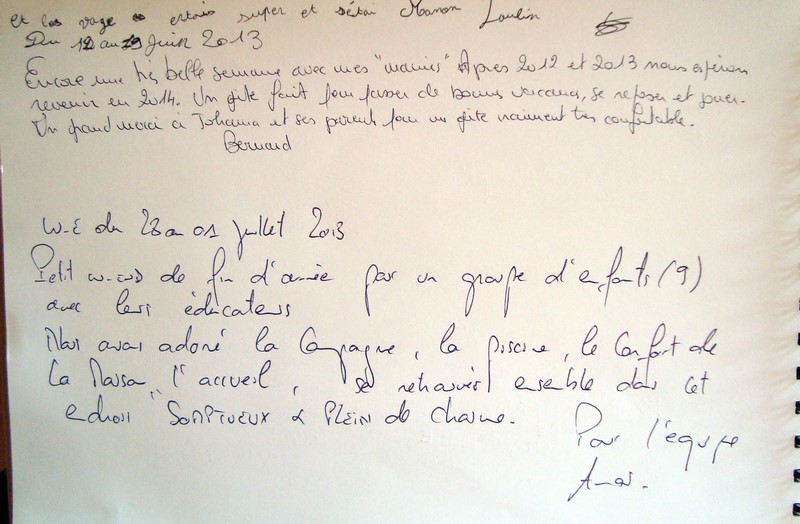 et les vage entais super et sétai Manon Laulin
Du 12 au 19 Juin 2013
Encore une très belle semaine avec mes "mamies" Après 2012 et 2013 nous espérons
revenir en 2014. Un gîte fait pour passer de bonnes vacances, se reposer et jouer.
Un grand merci à Johanna et ses parents pour un gîte vraiment très confortable.
Bernard
W-E du 28 au 01 Juillet 2013
Petit w-end de fin d'année par un groupe d'enfants (9)
avec leurs éducateurs
Nous avons adoré la Campagne, la piscine, le Confort de
la Maison, l'accueil, se retrouver ensemble dans cet
endroit "SOMPTUEUX & PLEIN de charme.
Pour l'équipe